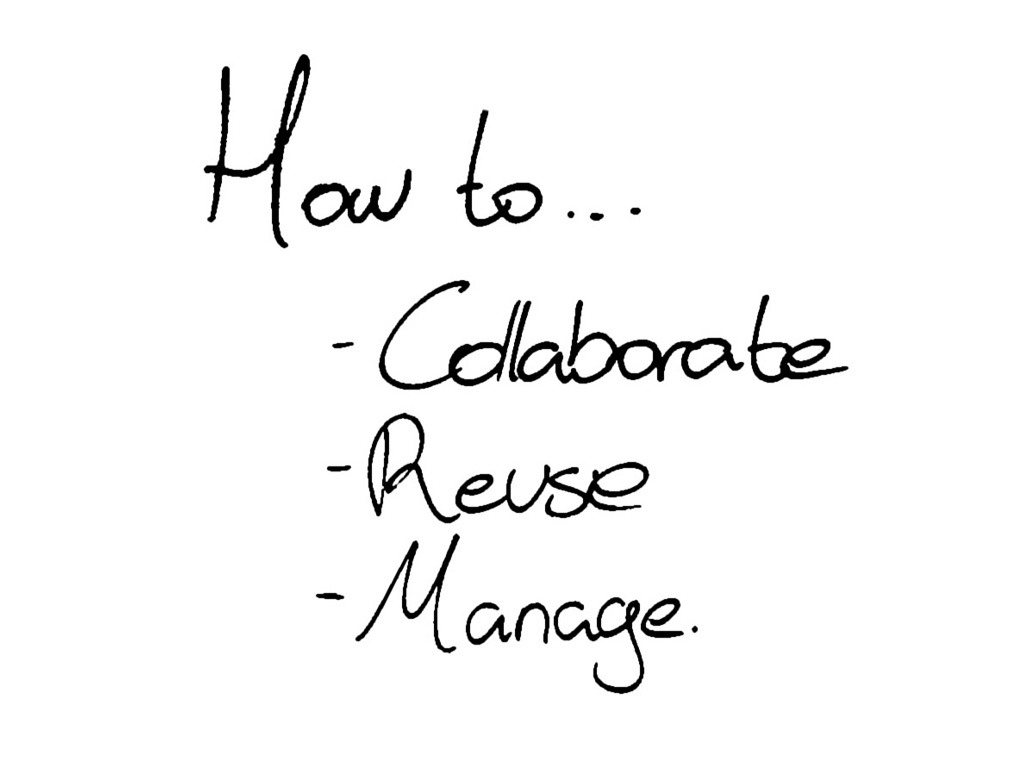 How to...
- Collaborate
- Reuse
- Manage.